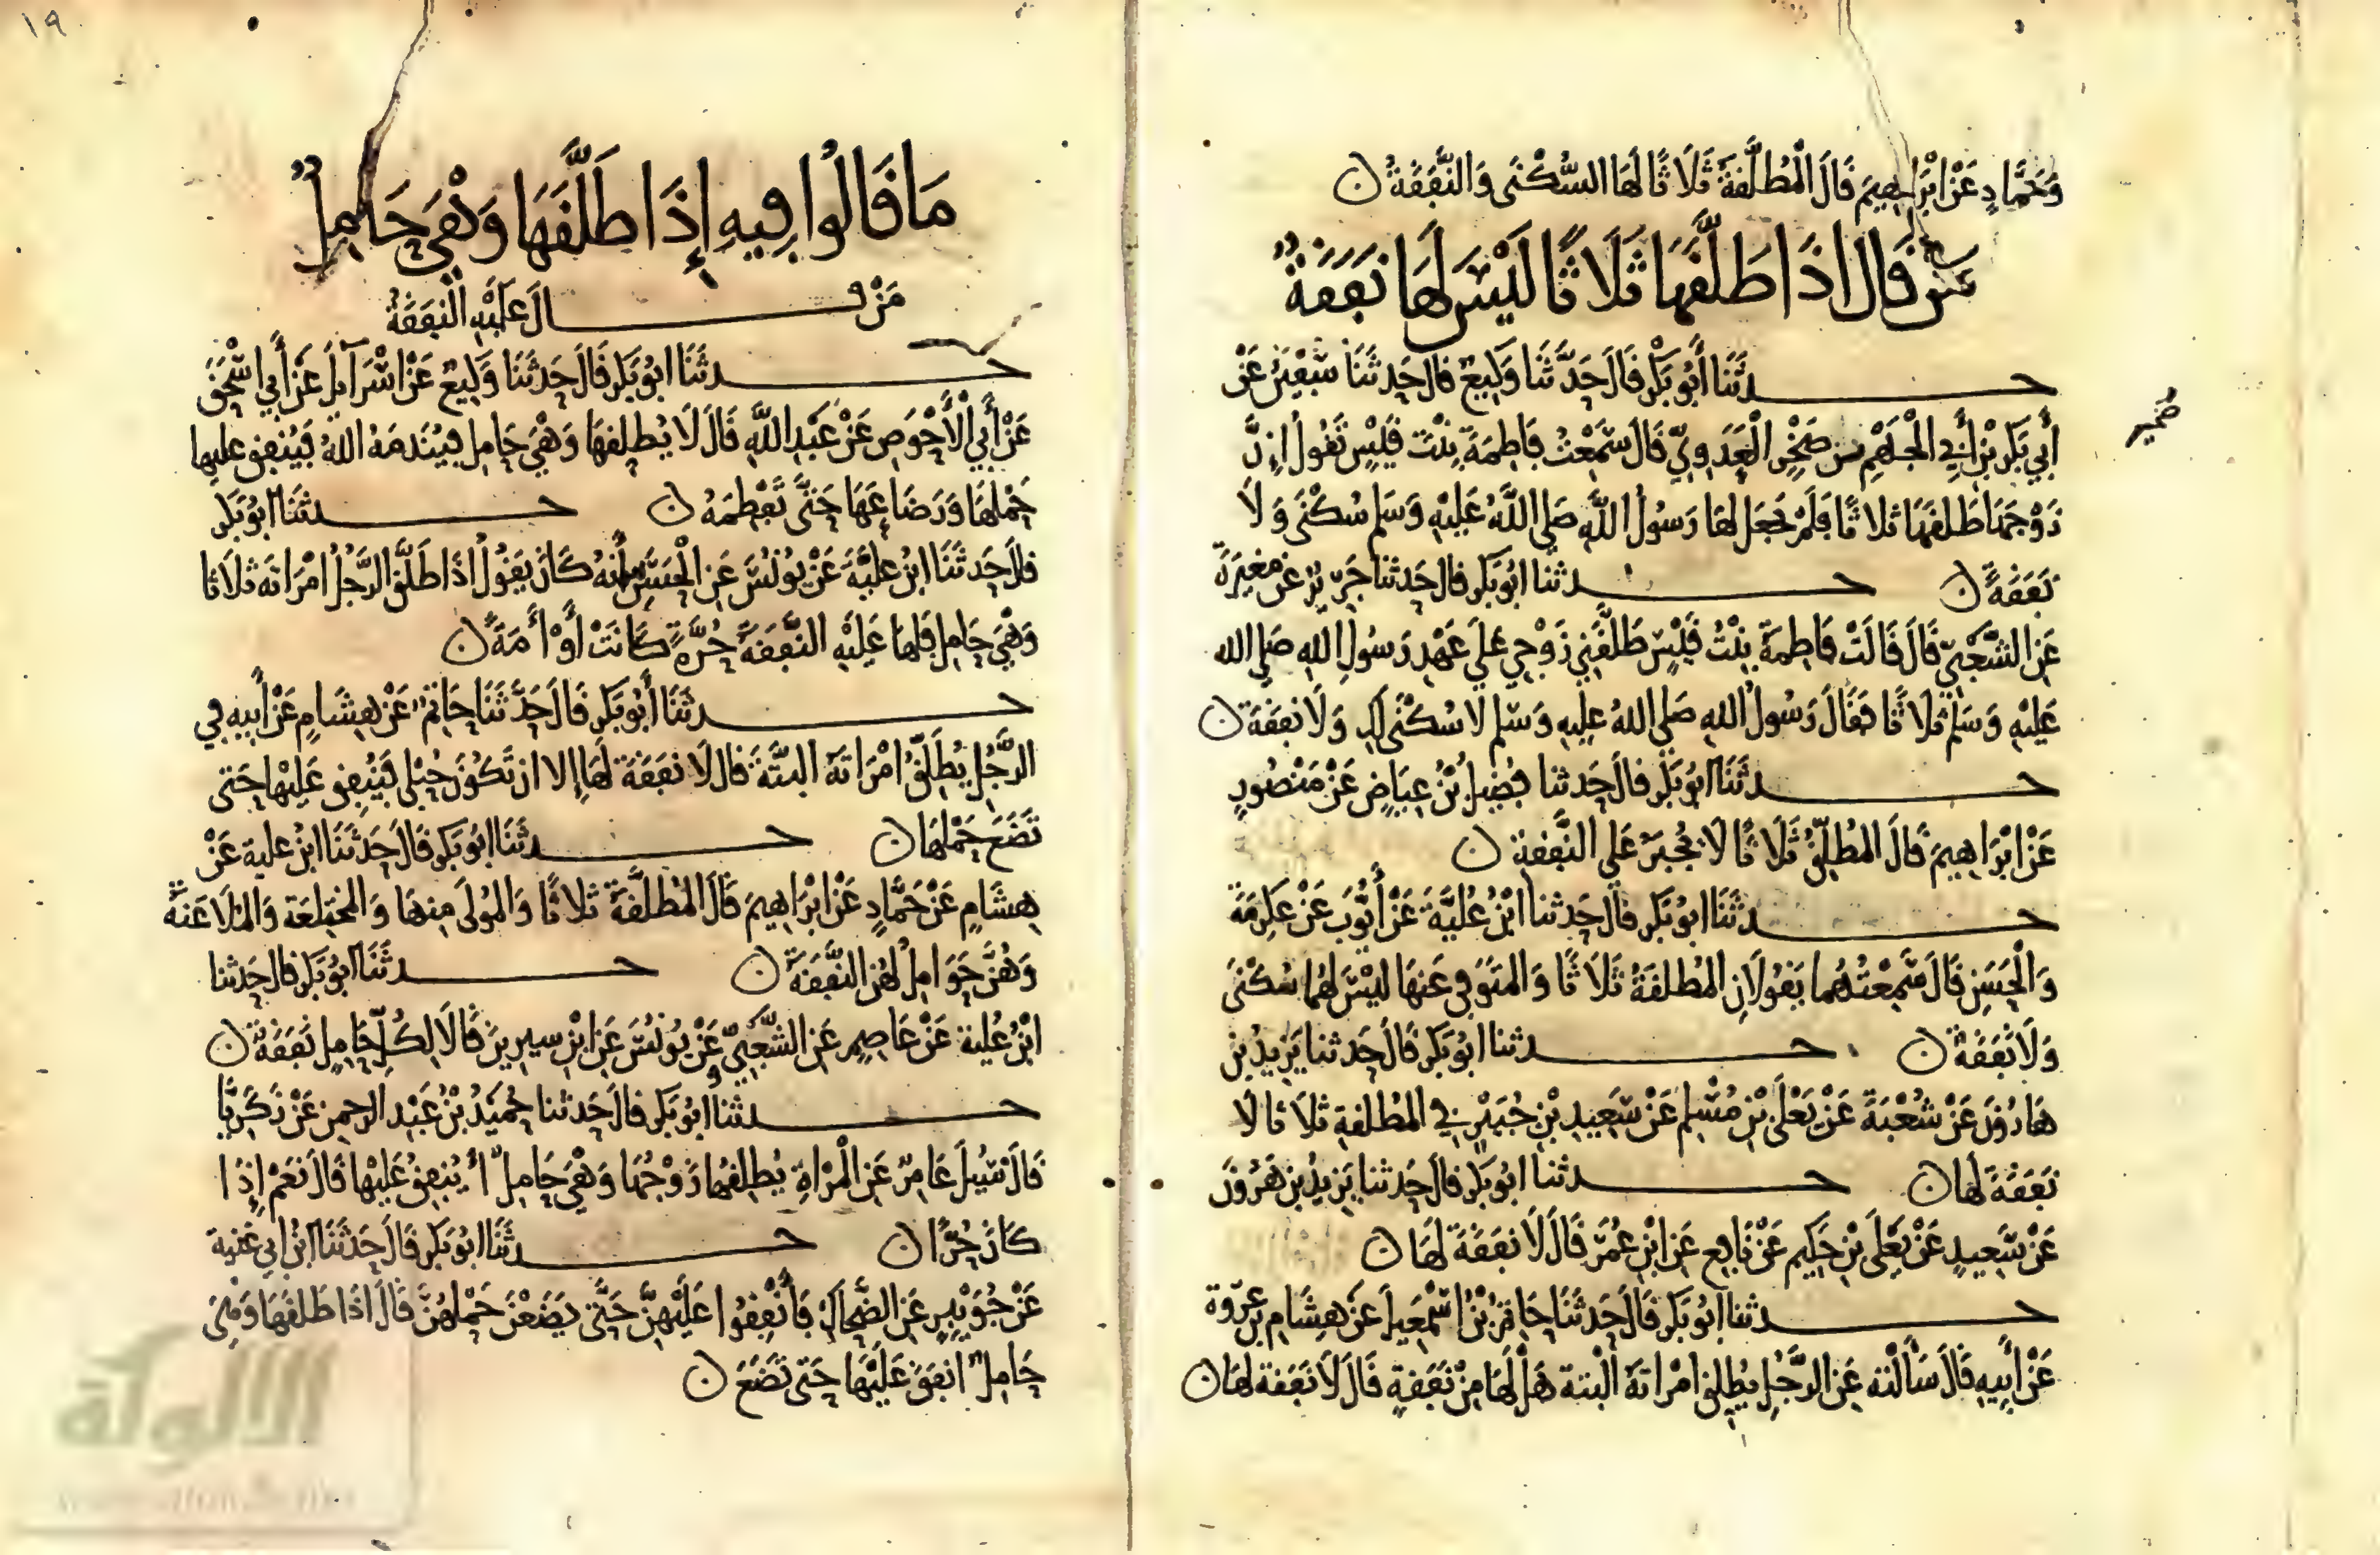 وَحَمَّادٍ عَنْ ابْرَاهِيمَ قَالَ الْمُطَلَّقَةُ ثَلَاثًا لَهَا السُّكْنَى وَالنَّفَقَةُ ن
مَن قَالَ اذَا طَلَّقَهَا ثَلَاثًا لَيْسَ لَهَا نَفَقَةٌ
حدثَنَا أَبُو بَكْرٍ قَالَ حَدَّثَنَا وَكِيعٌ قَالَ حَدثَنَا سُفْيَنُ عَنْ
أَبِي بَكْرِ بْنِ أَبِي الْجَهْمِ بن صُخَيْرٍ الْعَدَوِيِّ قَالَ سَمِعْتُ فَاطِمَةَ بِنْتَ قَيْسٍ تَقُولُ اِنَّ
زَوْجَهَا طَلقَهَا ثلاثًا فَلَمْ يَجْعَل لهَا رَسُولُ اللَّهِ صَلى اللَّهُ عَلَيْهِ وَسَلم سُكْنَى وَلَا
نَفَقَةً ن حدثنا ابُو بَكر قال حَدثنا جَرِيرٌ عن مغِيرَةَ
عَنِ الشَّعْبِيِّ قَالَ قَالَتْ فَاطِمَةُ بِنْتُ قَيْسٍ طَلَّقَنِي زَوْجِي عَلَى عَهْدِ رَسُولِ اللهِ صَلى الله
عَلَيْهِ وَسَلم ثلَاثًا فَقَالَ رَسُولُ اللهِ صَلى اللهُ عليهِ وَسَلم لا سُكْنَى لَكِ وَلَا نفَقَةَ ن
حدثَنَا ابُو بَكْرٍ قالَ حَدثنا فُضَيلُ بْنُ عِيَاضٍ عَنْ مَنْصُورٍ
عَنْ ابْرَاهِيمَ قَالَ المُطَلِّقُ ثَلَاثًا لَا يُجْبَرُ عَلى النَّفَقَةِ ن
حدثَنَا ابو بَكر قالَ حَدثنا ابْنُ عُلَيَّةَ عَنْ أَيُّوبَ عَنْ عِكرِمَةَ
وَالْحَسَنِ قَالَ سَمِعْتُهُما يَقُولَانِ المُطَلقَةُ ثَلَاثًا وَالمتَوَفى عَنهَا ليْسَ لهُما سُكْنَى
وَلَا نَفَقَةٌ ن حدثنا ابُو بَكرٍ قَالَ حَدثنا يَزِيدُ بن
هَارُونَ عَنْ شُعْبَةَ عَنْ يَعْلَى بْنِ مُسْلِم عَنْ سَعِيدِ بْنِ جُبَيْرٍ فِي المُطَلقةِ ثلَاثا لَا
نَفَقَةَ لَهَا ن حدثنا ابُو بَكر قالَ حَدثنا يَزِيدُ بن هَرُونَ
عَنْ سَعِيدٍ عَنْ يَعْلَى بْنِ حَكِيمٍ عَنْ نَافِعٍ عَن ابْنِ عُمَرَ قَالَ لَا نفَقَةَ لَهَا ن
حدثنا أبُو بَكر قَالَ حَدثَنَا حَاتِمُ بْنُ اسْمَعِيلَ عَنْ هِشَامِ بن عرْوة
عَنْ أَبِيهِ قَالَ سَأَلْتُه عَنِ الرَّجُلِ يُطَلِّقُ امْرَاتَهُ الْبَتة هَلْ لَهَا مِنْ نَفَقَةٍ قَالَ لَا نَفَقَة لهَا ن
صُخير
١٩
مَا قَالُوا فِيهِ إِذَا طَلَّقَهَا وَهْيَ حَامِلٌ
مَنْ قَالَ عَلَيْهِ النَّفَقَةُ
حدثَنَا ابُو بَكر قَالَ حَدثَنَا وَكِيعٌ عَنْ اسْرَآيلَ عَنْ أَبي اسْحَقَ
عَنْ أَبِي الْأَحْوَصِ عَنْ عَبْدِ اللَّهِ قَالَ لَا يُطَلِّقهَا وَهْيَ حَامِل فيُنْدمَهُ اللهُ فَيُنْفِق عليها
حَمْلهَا وَرَضَاعَهَا حَتَّى تَفْطِمَهُ ن حدثَنَا ابُو بَكر
قال حَدثَنَا ابْنُ عُلَيَّةَ عَنْ يُونُسَ عَنِ الْحَسَنِ أنهُ كَانَ يَقُولُ اذَا طَلَّقَ الرَّجُلُ امْرَاتَه ثَلَاثا
وَهْيَ حَامِل فَلهَا عَلَيْهِ النَّفَقَةُ حُرَّةً كَانَتْ أَوْ أَمَةً ن
حدثَنَا أَبُو بَكر قَالَ حَدَّثَنَا حَاتِمٌ عَنْ هِشَامٍ عَنْ أَبِيهِ فِي
الرَّجُلِ يُطَلِّقُ امْرَاتَهُ البتَّةَ قال لَا نفَقَةَ لَهَا إلا ان تَكُونَ حُبْلى فَيُنفِق عَلَيْهَا حَتى
تَضَعَ حَمْلهَا ن حدثَنَا ابُو بَكر قَالَ حَدَثَنَا ابنُ علية عَنْ
هِشَامٍ عَنْ حَمَّادٍ عَنْ ابْرَاهِيمَ قَالَ المُطَلَّقَةُ ثلاثًا وَالمُولَى مِنهَا وَالمختلِعَة وَالمُلاعَنَةُ
وَهُنَّ حَوَامِلُ لهُنَّ النَّفَقَةُ ن حدثَنَا ابو بَكر قال حَدثنا
ابْنُ عُلية عَنْ عَاصِمٍ عَنِ الشَّعْبِيِّ وعَنْ يُونُسَ عَنِ ابْنِ سيرِينَ قَالَا لِكُلِّ حَامِلٍ نَفَقَةٌ ن
حدثنا ابُو بَكر قالَ حَدثنا حُمَيْدُ بْنُ عَبْد الرحمن عَنْ زَكَرِيَّا
قَالَ سُئِلَ عَامِرٌ عَنِ الْمَرْاةِ يُطلِّقُهَا زَوْجُهَا وَهْيَ حَامِلٌ أيُنفِقُ عَلَيْهَا قَالَ نَعَمْ إِذَا
كَانَ حُرًّا ن حدثَنَا ابُو بَكر قَالَ حَدثَنَا ابْنُ ابي غَنِية
عَنْ جُوَيْبِرٍ عَنِ الضَّحاك فَأَنْفِقُوا عَلَيْهِنَّ حَتَّى يَضَعْنَ حَمْلهُنَّ قَالَ اذَا طَلقَهَا وَهْيَ
حَامِلٌ انفَقَ عَلَيْهَا حَتى تَضَعَ ن
الألوكة